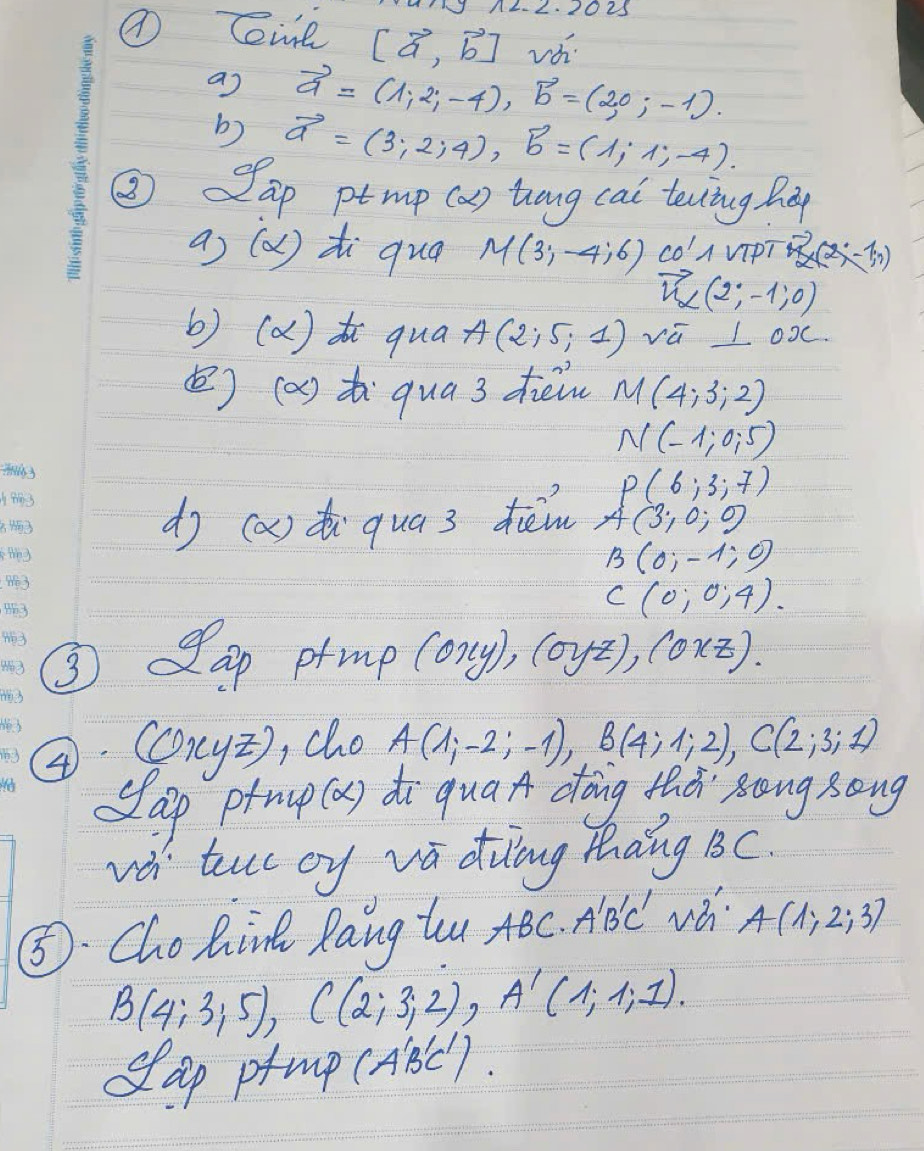 12.2.2025
① Tính [a⃗, b⃗] với
a) a⃗ = (1; 2; -4), b⃗ = (2;0; -1).
b) a⃗ = (3; 2; 4), b⃗ = (1; 1; -4).
② Lập ptmp (α) trong các trường hợp
a) (α) đi qua M(3; -4; 6) có 1 VTPT
n⃗α (2; -1; 0)
b) (α) đi qua A(2; 5; 1) và ⊥ ox.
c) (α) đi qua 3 điểm M(4; 3; 2)
N(-1; 0; 5)
P(6; 3; 7)
d) (α) đi qua 3 điểm A(3; 0; 0)
B(0; -1; 0)
C(0; 0; 4).
③ Lập ptmp (oxy), (oyz), (oxz).
④ (Oxyz), cho A(1; -2; -1), B(4; 1; 2), C(2; 3; 1)
Lập ptmp (α) đi qua A đồng thời song song
với trục oy và đường thẳng BC.
⑤ Cho hình lăng trụ ABC.A'B'C' với A(1; 2; 3)
B(4; 3; 5), C(2; 3; 2), A'(1; 1; 1).
Lập ptmp (A'B'C').